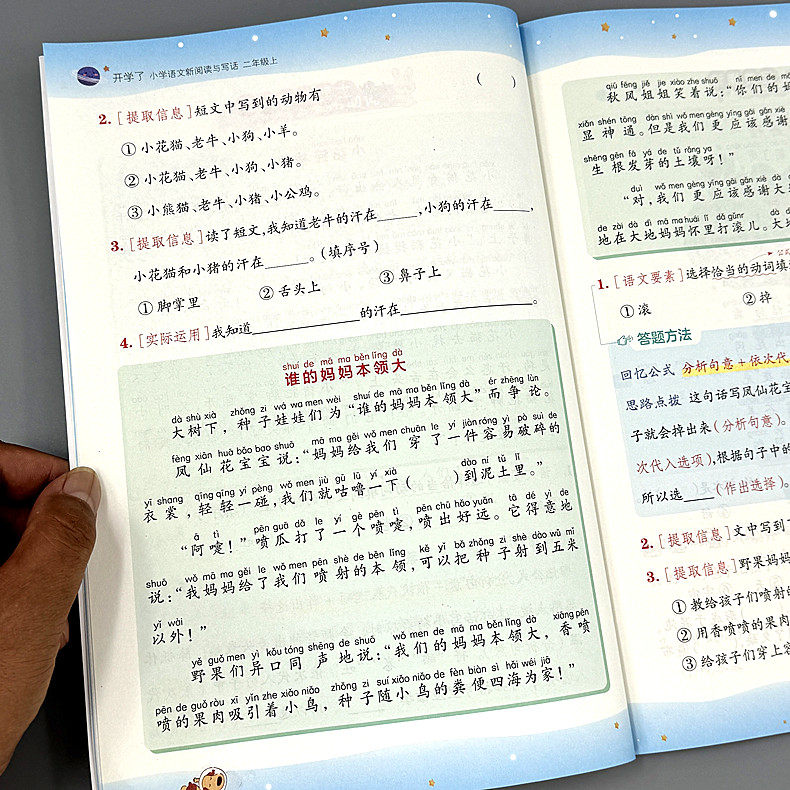 开学了 小学语文新阅读与写话 二年级上
2.[提取信息]短文中写到的动物有 ( )
①小花猫、老牛、小狗、小羊。
②小花猫、老牛、小狗、小猪。
③小熊猫、老牛、小猪、小公鸡。
3.[提取信息]读了短文,我知道老牛的汗在____,小狗的汗在____,
小花猫和小猪的汗在____。(填序号)
①脚掌里 ②舌头上 ③鼻子上
4.[实际运用]我知道____的汗在____。
shuí de mā ma běn lǐng dà
谁的妈妈本领大
dà shù xià zhǒng zi wá wa men wèi shuí de mā ma běn lǐng dà ér zhēng lùn
大树下,种子娃娃们为“谁的妈妈本领大”而争论。
fèng xiān huā bǎo bao shuō mā ma gěi wǒ men chuān le yí jiàn róng yì pò suì de
凤仙花宝宝说:“妈妈给我们穿了一件容易破碎的
yī shang qīng qīng yí pèng wǒ men jiù gū lū yí xià dào ní tǔ lǐ
衣裳,轻轻一碰,我们就咕噜一下( )到泥土里。”
ā tì pēn guā dǎ le yí gè pēn tì pēn chū hǎo yuǎn tā dé yì de
“阿嚏!”喷瓜打了一个喷嚏,喷出好远。它得意地
shuō wǒ mā ma gěi le wǒ men pēn shè de běn lǐng kě yǐ bǎ zhǒng zi shè dào wǔ mǐ
说:“我妈妈给了我们喷射的本领,可以把种子射到五米
yǐ wài
以外!”
yě guǒ men yì kǒu tóng shēng de shuō wǒ men de mā ma běn lǐng dà xiāng pēn
野果们异口同声地说:“我们的妈妈本领大,香喷
pēn de guǒ ròu xī yǐn zhe xiǎo niǎo zhǒng zi suí xiǎo niǎo de fèn biàn sì hǎi wéi jiā
喷的果肉吸引着小鸟,种子随小鸟的粪便四海为家!”
qiū fēng jiě jie xiào zhe shuō nǐ men de mā
秋风姐姐笑着说:“你们的妈
xiǎn shén tōng dàn shì wǒ men gèng yīng gāi gǎn xiè
显神通。但是我们更应该感谢
shēng gēn fā yá de tǔ rǎng ya
生根发芽的土壤呀!”
duì wǒ men gèng yīng gāi gǎn xiè dà
“对,我们更应该感谢大
de zài dà dì mā ma huái lǐ dǎ gǔnr dà
地在大地妈妈怀里打滚儿。大
1.[语文要素]选择恰当的动词填
①滚 ②摔
答题方法
回忆公式 分析句意+依次代
思路点拨 这句话写凤仙花宝
子就会掉出来(分析句意)。
次代入选项),根据句子中的
所以选____(作出选择)。
2.[提取信息]文中写到了
3.[提取信息]野果妈妈
①教给孩子们喷射的
②用香喷喷的果肉
③给孩子们穿上容